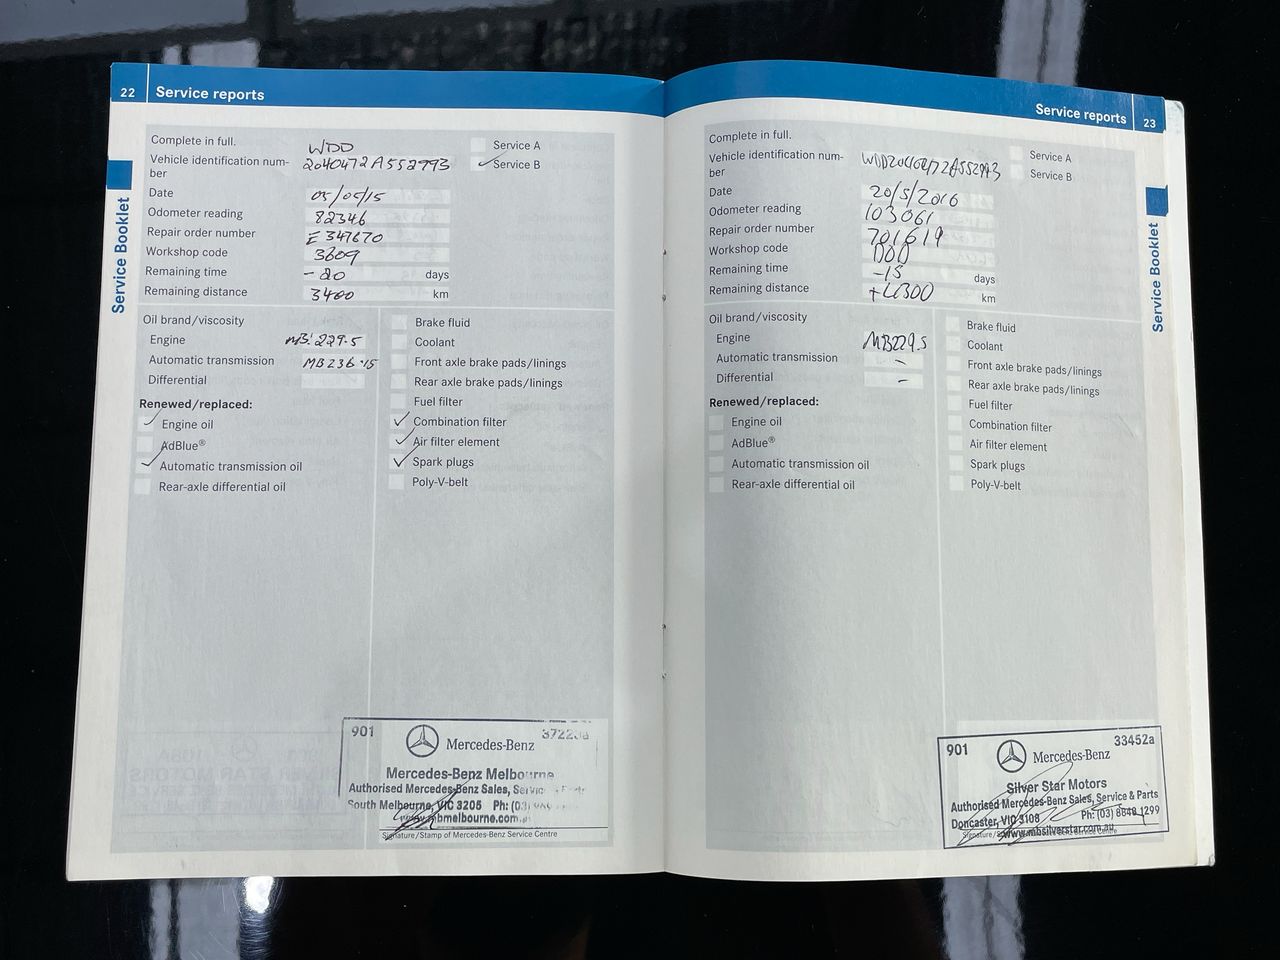 22 Service reports
Service Booklet
Complete in full.
WDD
Service A
Vehicle identification num-
ber
2040472A552993
Service B
Date 05/05/15
Odometer reading 82346
Repair order number E347670
Workshop code 3609
Remaining time -20 days
Remaining distance 3400 km
Oil brand/viscosity
Engine MB:229.5
Automatic transmission MB236.15
Differential
Renewed/replaced:
Engine oil
AdBlue®
Automatic transmission oil
Rear-axle differential oil
Brake fluid
Coolant
Front axle brake pads/linings
Rear axle brake pads/linings
Fuel filter
Combination filter
Air filter element
Spark plugs
Poly-V-belt
901
Mercedes-Benz
Mercedes-Benz Melbourne
Authorised Mercedes-Benz Sales,
South Melbourne, VIC 3205 Ph: (03)
www.mbmelbourne.com.
Signature/Stamp of Mercedes-Benz Service Centre
Service reports 23
Service Booklet
Complete in full.
Service A
Vehicle identification num-
ber
WDD2040472A552993
Service B
Date 20/5/2016
Odometer reading 103061
Repair order number 701619
Workshop code
Remaining time -15 days
Remaining distance +4300 km
Oil brand/viscosity
Engine MB229.5
Automatic transmission -
Differential -
Renewed/replaced:
Engine oil
AdBlue®
Automatic transmission oil
Rear-axle differential oil
Brake fluid
Coolant
Front axle brake pads/linings
Rear axle brake pads/linings
Fuel filter
Combination filter
Air filter element
Spark plugs
Poly-V-belt
901 33452a
Mercedes-Benz
Silver Star Motors
Authorised Mercedes-Benz Sales, Service & Parts
Doncaster, VIC 3108 Ph: (03) 8848 1299
www.mbsilverstar.com.au